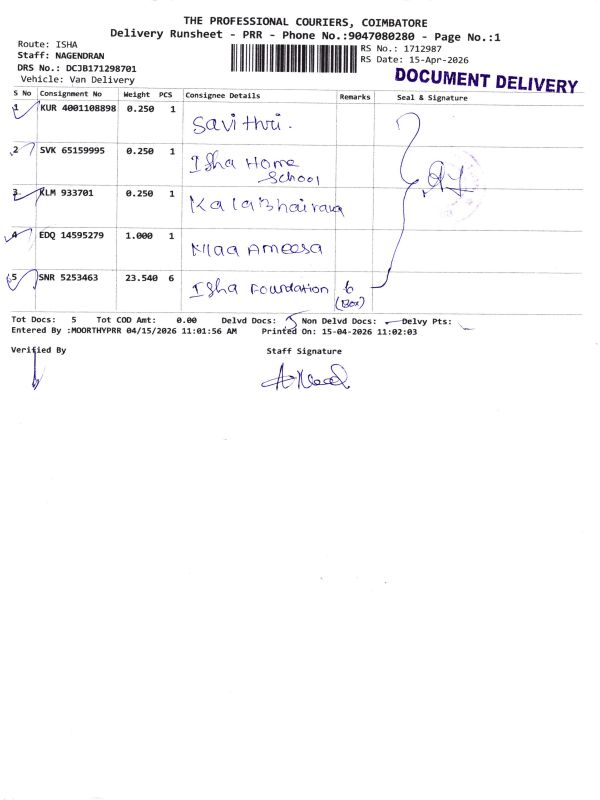 THE PROFESSIONAL COURIERS, COIMBATORE
Delivery Runsheet - PRR - Phone No.:9047080280 - Page No.:1
Route: ISHA
Staff: NAGENDRAN
DRS No.: DCJB171298701
Vehicle: Van Delivery
RS No.: 1712987
RS Date: 15-Apr-2026
DOCUMENT DELIVERY
S No Consignment No Weight PCS Consignee Details Remarks Seal & Signature
1 KUR 4001108898 0.250 1 Savithri.
2 SVK 65159995 0.250 1 Isha Home School
3 KLM 933701 0.250 1 KalaBhairava
4 EDQ 14595279 1.000 1 Maa Ameesa
5 SNR 5253463 23.540 6 Isha Foundation 6 (Box)
Tot Docs: 5 Tot COD Amt: 0.00 Delvd Docs: 5 Non Delvd Docs: Delvy Pts:
Entered By :MOORTHYPRR 04/15/2026 11:01:56 AM Printed On: 15-04-2026 11:02:03
Verified By Staff Signature